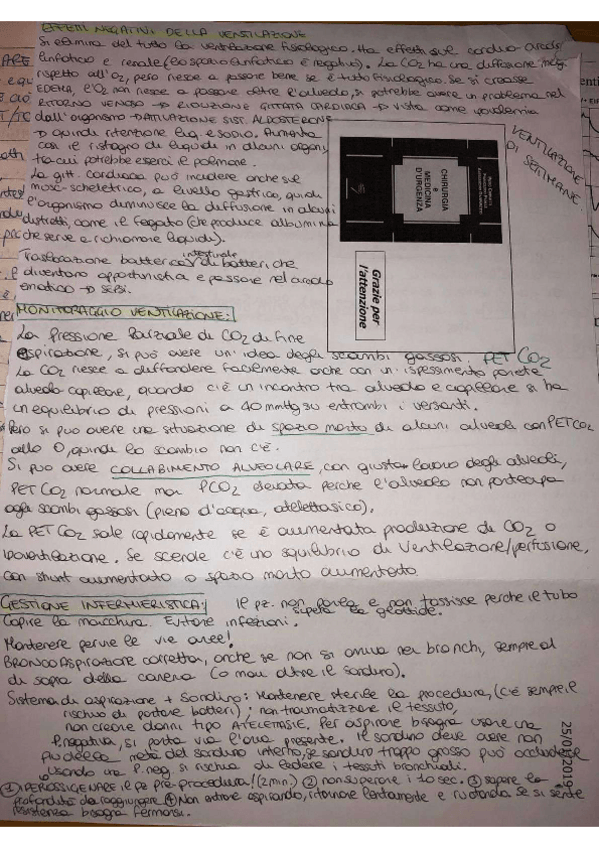 EFFETTI NEGATIVI DELLA VENTILAZIONE
Si elimina del tutto la ventilazione fisiologica. Ha effetti sul cardio-circol
linfatico e renale (lo spazio linfatico è negativo). La CO2 ha una diffusione
rispetto all'O2, però riesce a passare bene se è tutto fisiologico. Se si creasse
EDEMA, l'O2 non riesce a passare oltre l'alveolo, si potrebbe avere un problema nel
RITORNO VENOSO → RIDUZIONE GITTATA CARDIACA → vista come ipovolemia
dall'organismo → ATTIVAZIONE SIST. ALDOSTERONE
→ quindi ritenzione liq. e sodio. Aumenta
così il ristagno di liquidi in alcuni organi,
tra cui potrebbe esserci il polmone.
La gitt. cardiaca può incidere anche sul
musc-scheletrico, a livello gastrico, quindi
l'organismo diminuisce la diffusione in alcuni
distretti, come il fegato (che produce albumina
che serve a richiamare liquidi).
Traslocazione batterica intestinale di batteri che
diventano opportunisti e passare nel circolo
ematico → SEPSI.
VENTILAZIONE
DI SETTIMANE
CHIRURGIA
e
MEDICINA
D'URGENZA
Grazie per
l'attenzione
MONITORAGGIO VENTILAZIONE:
La Pressione Parziale di CO2 di fine
espirazione, si può avere un'idea degli scambi gassosi. PETCO2
La CO2 riesce a diffondere facilmente anche con un ispessimento parete
alveolo-capillare, quando c'è un incontro tra alveolo e capillare si ha
un equilibrio di pressioni a 40 mmHg su entrambi i versanti.
Però si può avere una situazione di spazio morto di alcuni alveoli con PETCO2
allo 0, quindi lo scambio non c'è.
Si può avere COLLABIMENTO ALVEOLARE, con giusto lavoro degli alveoli,
PETCO2 normale ma PCO2 elevata perché l'alveolo non partecipa
agli scambi gassosi (pieno d'acqua, atelettasico).
La PETCO2 sale rapidamente se è aumentata produzione di CO2 o
ipoventilazione. Se scende c'è uno squilibrio di ventilazione/perfusione,
con shunt aumentato o spazio morto aumentato.
GESTIONE INFERMIERISTICA: Il pz. non parla e non tossisce perché il tubo
supera la glottide.
Capire la macchina. Evitare infezioni.
Mantenere pervie le vie aree!
BRONCOASPIRAZIONE corretta, anche se non si arriva nei bronchi, sempre al
di sopra della carena (o mai oltre il sondino).
Sistema di aspirazione + Sondino: Mantenere sterile la procedura, (c'è sempre il
rischio di portare batteri); non traumatizzare il tessuto,
non creare danni tipo ATELETASIE. Per aspirare bisogna usare una
P. negativa, si porta via l'aria presente. Il sondino deve avere non
più della metà del sondino interno, se sondino troppo grosso può occludere
Usando una P. neg. si rischia di ledere i tessuti bronchiali.
① IPEROSSIGENARE il pz pre-procedura! (2 min.) ② non superare i 10 sec. ③ sapere la
profondità da raggiungere ④ Non entrare aspirando, ritornare lentamente e ruotando. Se si sente
resistenza bisogna fermarsi.